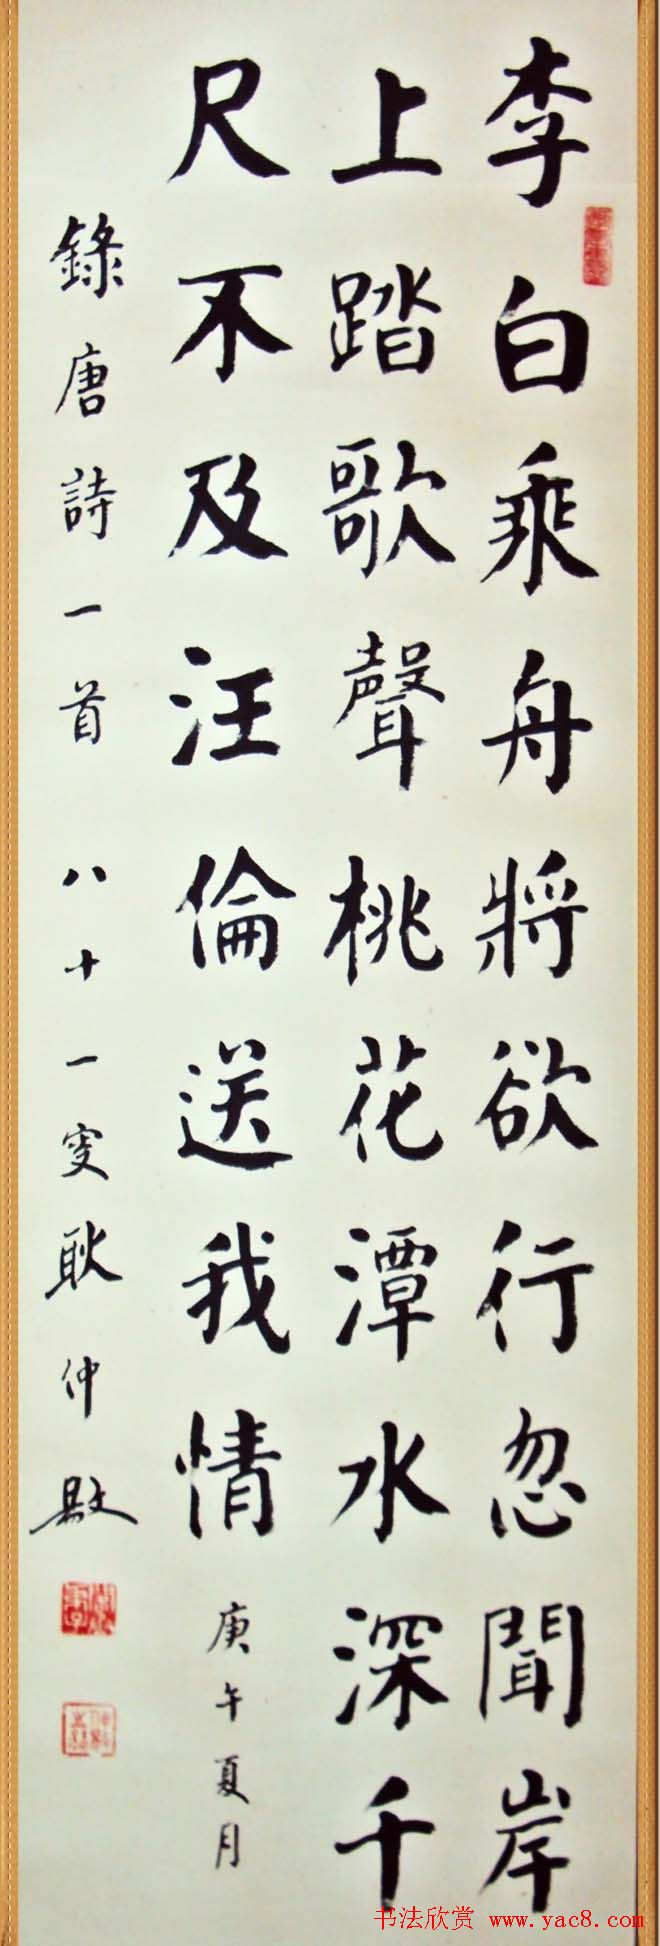 李白乘舟將欲行忽聞岸
上踏歌聲桃花潭水深千
尺不及汪倫送我情 庚午夏月
錄唐詩一首 八十一叟耿仲
书法欣赏 www.yac8.com